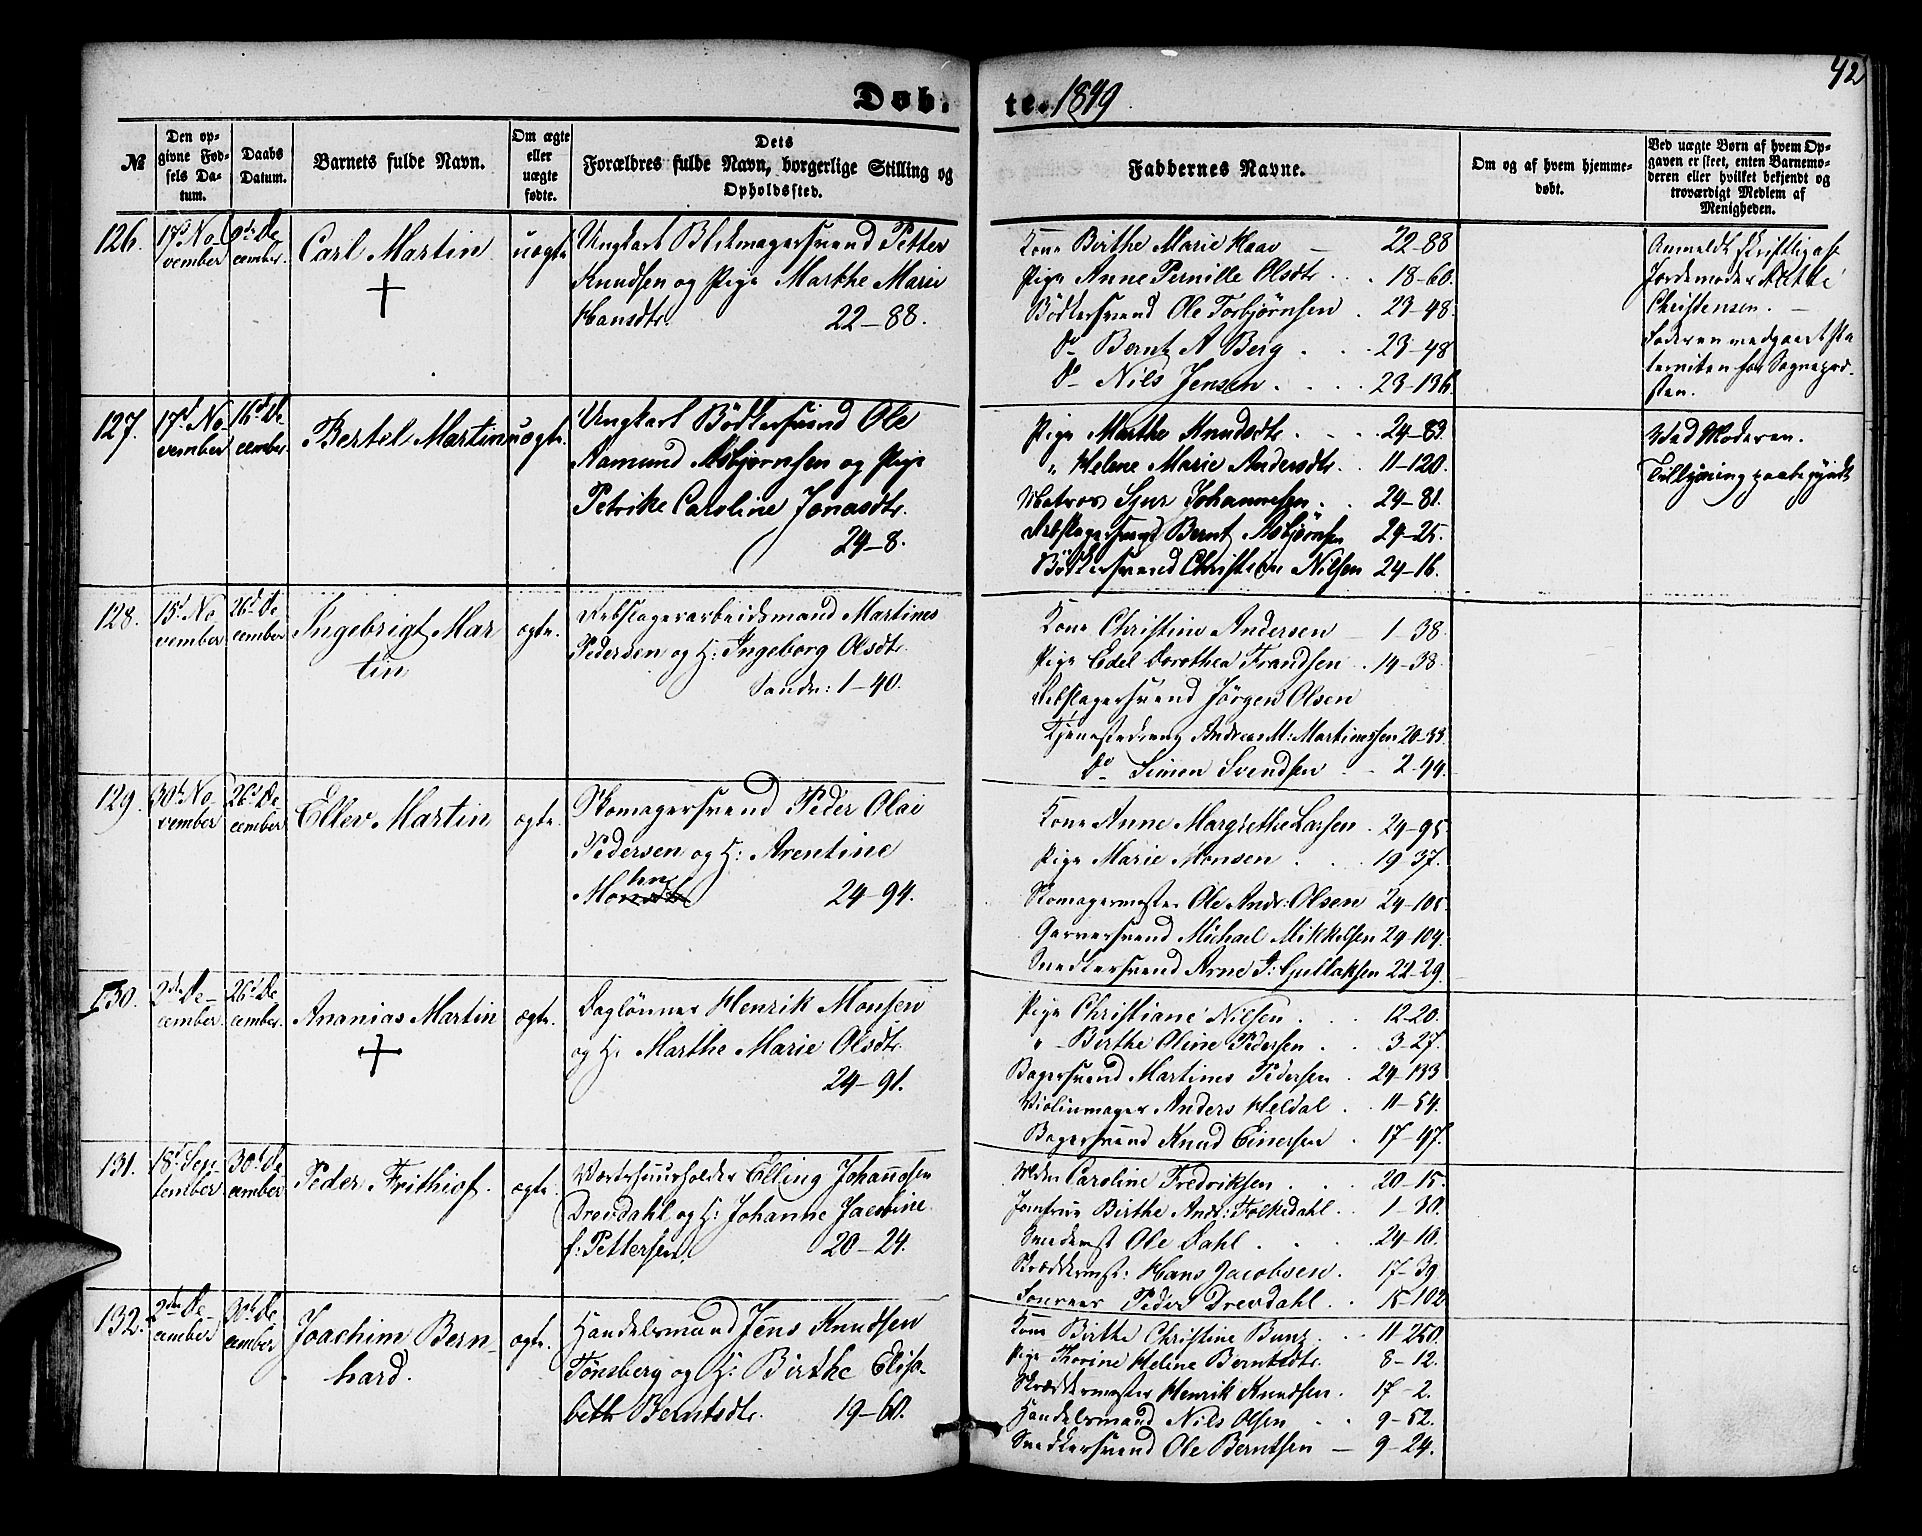 42
Døb- te. 1849.
No
Den op-
givne Fød-
sels Da-
tum.
Daabs
Datum.
Barnets fulde Navn.
Om ægte
eller
uægte
fødte.
Dets
Forældres fulde Navn, borgerlige Stilling og
Opholdssted.
Faddernes Navne.
Om og af hvem hjemme-
døbt.
Ved uægte Børn af hvem Op-
gaven er skeet, enten Barnemo-
deren eller hvilket bekjendt og
troværdigt Medlem af
Menigheden.
126.
17d No
vember
9de De
cember.
Carl Martin
uægte
Ungkarl Blikmagersvend Petter
Knudsen og Pige Marthe Marie
Hansdtr. 22-88.
Kone Birthe Marie Haav 22-88
Pige Anne Pernille Olsdtr. 18-60.
Bødkersvend Ole Torbjørnsen 23-48.
Do Bernt A Berg 23-48
Do Nils Jensen 23-136
Anmeldt skriftlig af
Jordemoder Alette
Christensen.
Faderen vedgaaet Pa
terniten for Sognepræ-
sten.
127.
17d No
vember
16d De
cember.
Bertel Martin
uægte.
Ungkarl Bødkersvend Ole
Aamund Asbjørnsen og Pige
Petrike Caroline Jonasdtr.
24-8.
Pige Marthe Knudsdtr. 24-83.
„ Helene Marie Andersdtr. 11-120.
Matros Sjur Johannesen 24-81.
Rebslagersvend Bernt Asbjørnsen 24-25.
Bødkersvend Christian Nilsen 24-16.
Ved Moderen.
Tillysning paabegyndt
128.
15d No
vember
26d De
cember
Ingebrigt Mar
tin
ægte.
Rebslagerarbeidsmand Martines
Pedersen og H: Ingeborg Olsdtr.
Sandv: 1-40.
Kone Christine Andersen 1-38.
Pige Edel Dorothea Frandsen 14-38.
Rebslagersvend Jörgen Olsen
Tjenestedreng Andreas M: Martinessen 20-33.
Do Simen Svendsen 2-94.
129.
30d No
vember
26d De
cember
Ellev Martin
ægte.
Skomagersvend Peder Olai
Pedersen og H: Arentine
Monsen 24-94.
Kone Anne Margrethe Larsen 24-95
Pige Marie Monsen 19-37.
Skomagermester Ole Andr: Olsen 24-105
Garversvend Michael Mikkelsen 24-104.
Snedkersvend Arne J: Gullaksen 22-29.
130.
2den De-
cember
26d De
cember.
Ananias Martin
ægte.
Daglönner Henrik Monsen
og H. Marthe Marie Olsdtr.
24-91.
Pige Christiane Nilsen 12-20.
„ - Birthe Oline Pedersen 3-27.
Bagersvend Martines Pedersen 24-133
Violinmager Anders Heldal 11-54.
Bagersvend Knud Einersen 17-47.
131.
18d Sep-
tember
30d De
cember
Peder Frithiof.
ægte.
Værtshuusholder Elling Johannsen
Drevdahl og H: Johanne Jacobine
f. Pettersen 20-24.
Mdm Caroline Fredriksen 20-15.
Jomfrue Birthe Andr: Folkedahl 1-30.
Smedemst Ole Dahl 24-10.
Skræddermst: Hans Jacobsen 17-39
Peder Drevdahl 15-102
132.
2den De
cember
30te De
cember
Joachim Bern
hard.
ægte.
Handelsmand Jens Knudsen
Tönsberg og H: Birthe Elisa
beth Berntsdtr. 19-60.
Kone Birthe Christine Bunz 11-250.
Pige Thorine Helene Berntsdtr. 8-12.
Skræddermester Henrik Knudsen. 17-2.
Handelsmand Nils Olsen 9-52.
Snedkersvend Ole Berntsen 9-24.